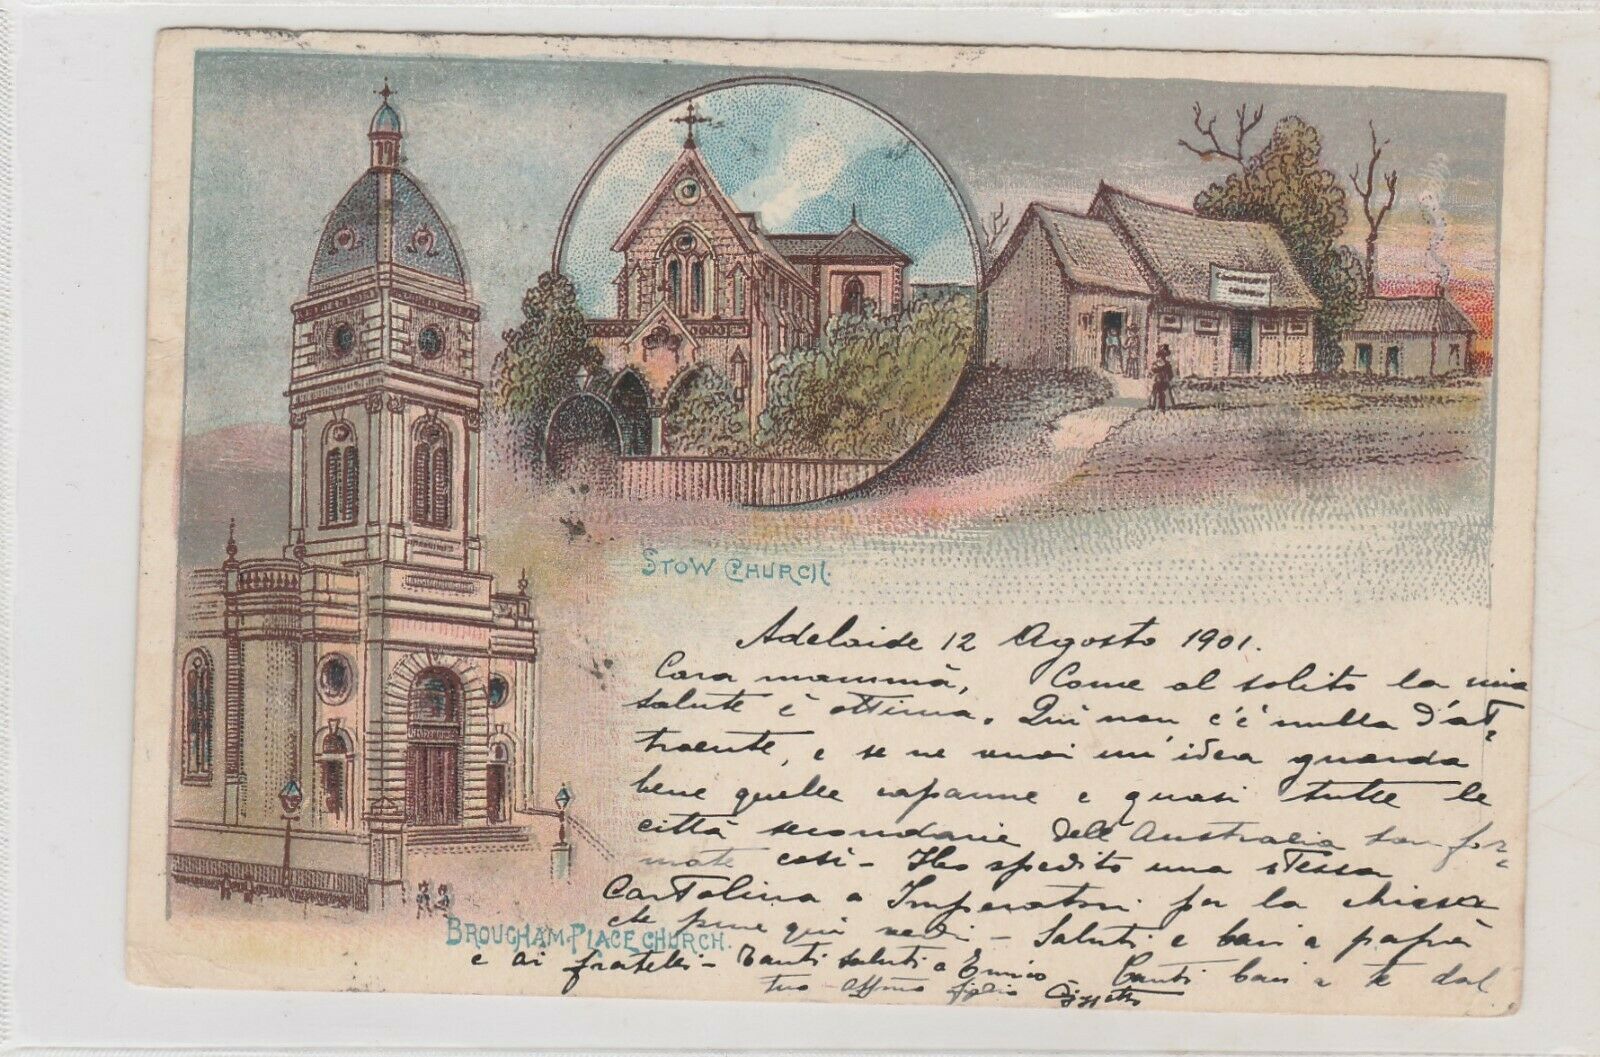 STOW CHURCH.
Adelaide 12 Agosto 1901.
Cara mammà, Come al solito la mia
salute è ottima. Qui non c'è nulla d'at=
traente, e se ne vuoi un'idea guarda
bene quelle capanne e quasi tutte le
città secondarie dell'Australia son for=
mate così - Ho spedito una stessa
Cartolina a Imperatori per la chiesa
che pure qui vedi - Saluti e baci a papà
BROUGHAM PLACE CHURCH.
e ai fratelli - Tanti saluti a Enrico - Tanti baci a te dal
tuo affmo figlio